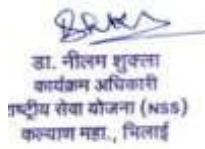 डा. नीलम शुक्ला
कार्यक्रम अधिकारी
ाष्ट्रीय सेवा योजना (NSS)
कल्याण महा., भिलाई